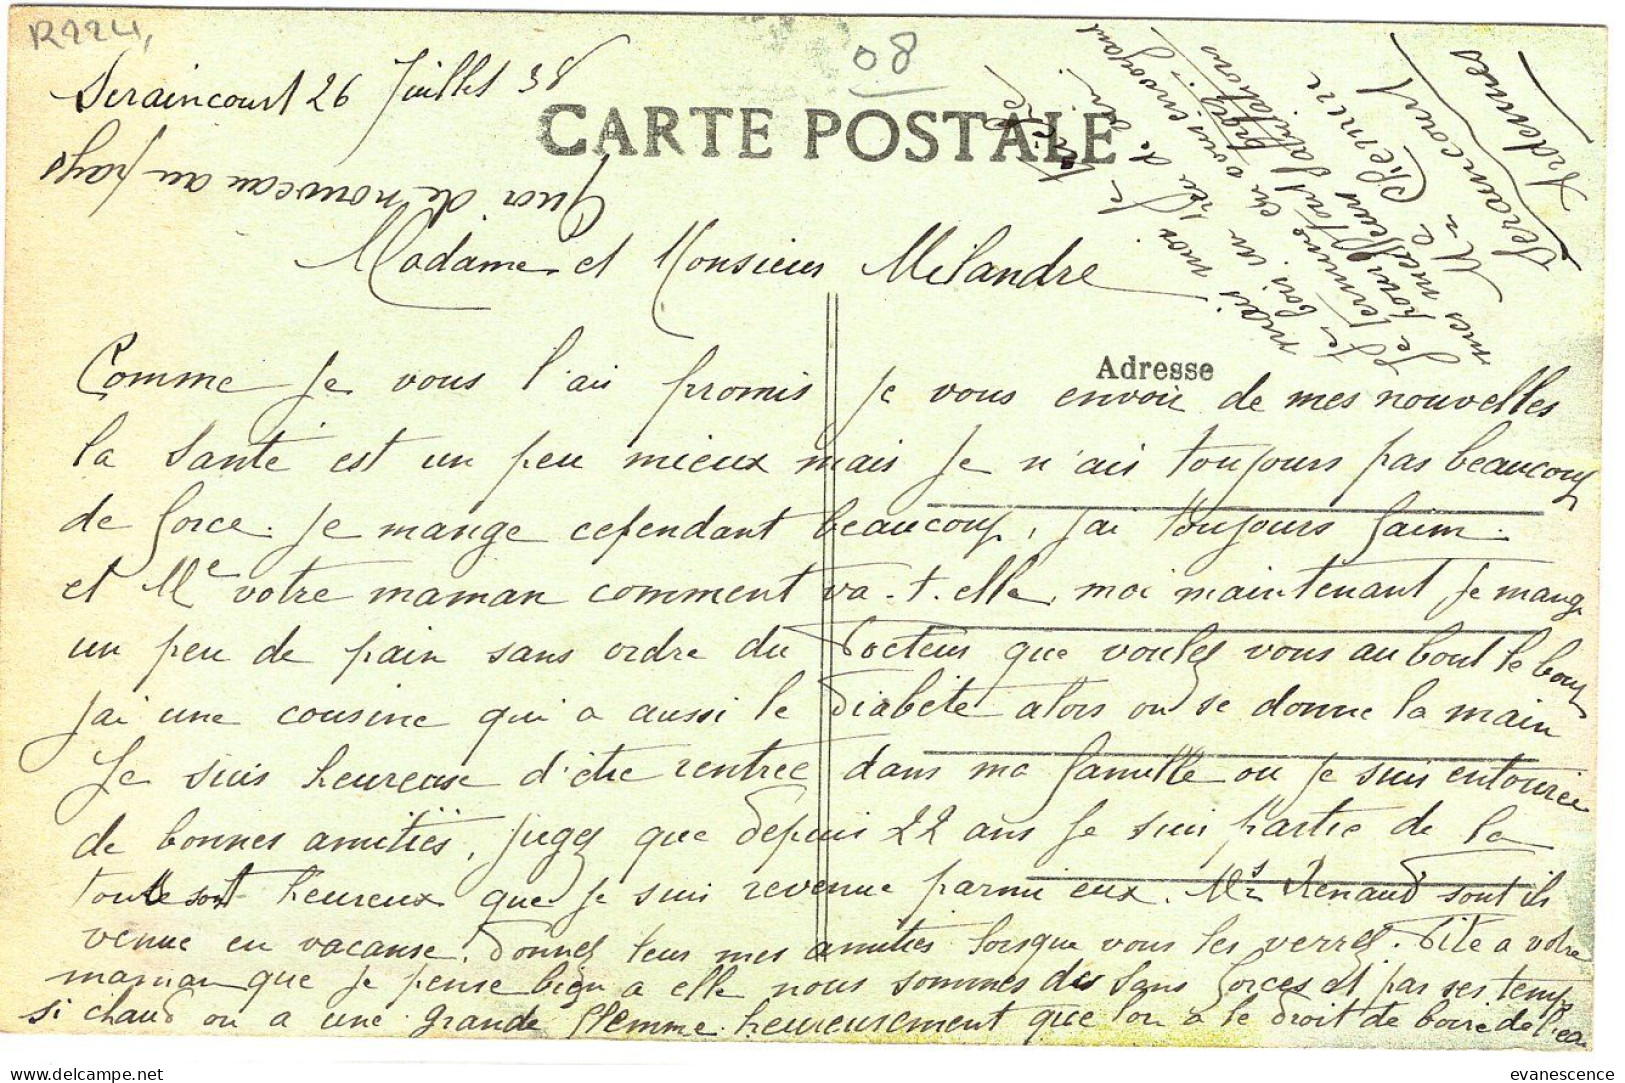 R224,
08
Seraincourt 26 Juillet 38
CARTE POSTALE
Quoi de nouveau au pays
Madame et Monsieur Milandre
Adresse
Comme Je vous l'ai promis Je vous envoie de mes nouvelles
la Santé est un peu mieux mais Je n'ais toujours pas beaucoup
de force. Je mange cependant beaucoup, j'ai toujours faim.
et Me votre maman comment va-t-elle, moi maintenant Je mange
un peu de pain sans ordre du Docteur que voulez vous au bout le bout
J'ai une cousine qui a aussi le Diabète alors on se donne la main
Je suis heureuse d'être rentree dans ma famille ou Je suis entourée
de bonnes amitiés, Jugez que depuis 22 ans Je suis partie de la
tous sont heureux que Je suis revenue parmi eux. Mrs Renaud sont ils
venue en vacanse. Donnez leus mes amities lorsque vous les verrez. Dite a votre
maman que Je pense bien a elle nous sommes des sans forces et par ses temps
si chaud on a une grande flemme. heureusement que l'on a le Droit de boire de l'eau
mais moi Je
bois un peu de
Je termine en vous envoyant
mes meilleurs
Me Chemere
Seraincourt
Ardennes